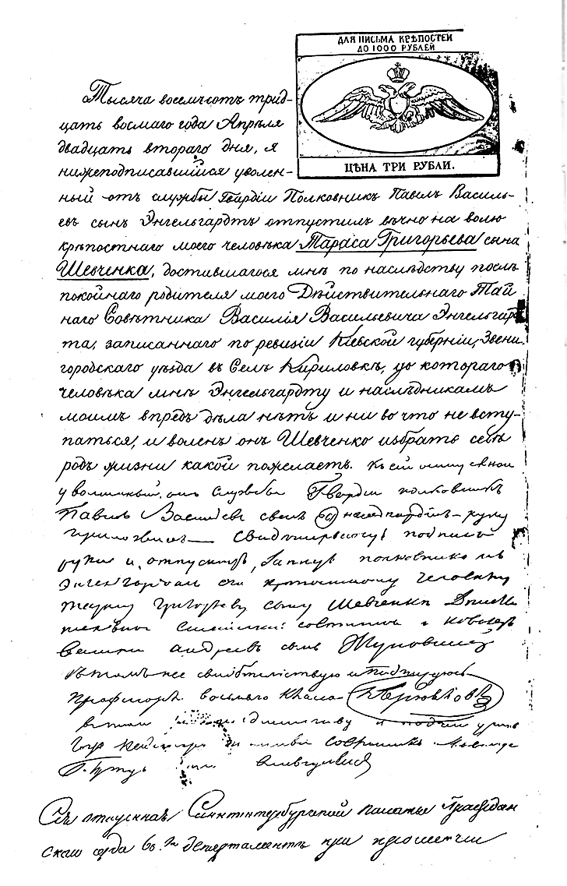 ДЛЯ ПИСЬМА КРѢПОСТЕЙ
ДО 1000 РУБЛЕЙ
ЦѢНА ТРИ РУБЛИ.
Тысяча восемьсотъ трид-
цать восмаго года Апрѣля
двадцать втораго дня, я
нижеподписавшійся уволен-
ный отъ службы Гвардіи Полковникъ Павелъ Василь-
евъ сынъ Энгельгардтъ отпустилъ вѣчно на волю
крѣпостнаго моего человѣка Тараса Григорьева сына
Шевченка, доставшагося мнѣ по наслѣдству послѣ
покойнаго родителя моего Дѣйствительнаго Тай
наго Совѣтника Василія Васильевича Энгельгард
та, записаннаго по ревизіи Кіевской губерніи, Звени
городскаго уѣзда въ Селѣ Кириловкѣ, до котораго
человѣка мнѣ Энгельгардту и наслѣдникамъ
моимъ впредь дѣла нѣтъ и ни во что не всту-
паться, и воленъ онъ Шевченко избрать себѣ
родъ жизни какой пожелаетъ. Къ сей отпускной
уволенный отъ службы Гвардіи полковникъ
Павелъ Васильевъ сынъ Энгельгардтъ руку
приложилъ
руки и отпускной полковника
Энгельгардтомъ его крѣпостному человѣку
Тарасу Григорьеву сыну Шевченкѣ
совѣтникъ и кавалеръ
Василій Андреевъ сынъ Жуковскій
Въ томъ же свидѣтельствую и подписуюсь
Профессоръ восьмаго класса К Брюлловъ
Сія отпускная Санктпетербургской палаты Граждан
скаго суда во 2м департаментѣ при прошеніи